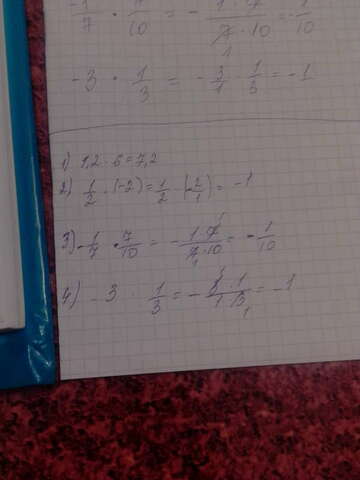 -1/7 · 7/10 = - 1·7/7·10 = -1/10
-3 · 1/3 = - 3/1 · 1/3 = -1
1) 1,2 · 6 = 7,2
2) 1/2 · (-2) = 1/2 · (-2/1) = -1
3) -1/7 · 7/10 = - 1·7/7·10 = -1/10
4) -3 · 1/3 = - 3·1/1·3 = -1